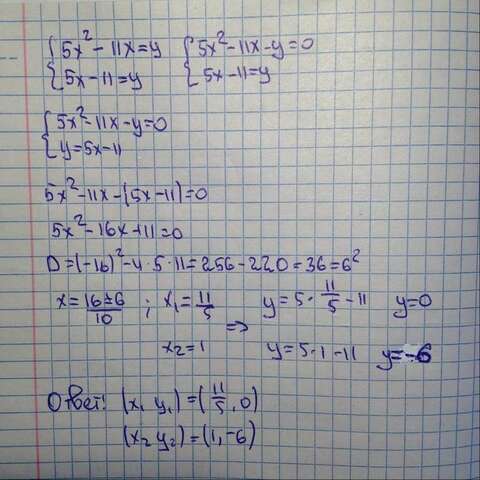 {5x²-11x=y {5x²-11x-y=0
{5x-11=y {5x-11=y
{5x²-11x-y=0
{y=5x-11
5x²-11x-(5x-11)=0
5x²-16x+11=0
D=(-16)²-4·5·11=256-220=36=6²
x=16±6/10 ; x₁=11/5 y=5·11/5-11 y=0
=>
x₂=1 y=5·1-11 y=-6
Ответ: (x₁ y₁)=(11/5, 0)
(x₂ y₂)=(1,-6)